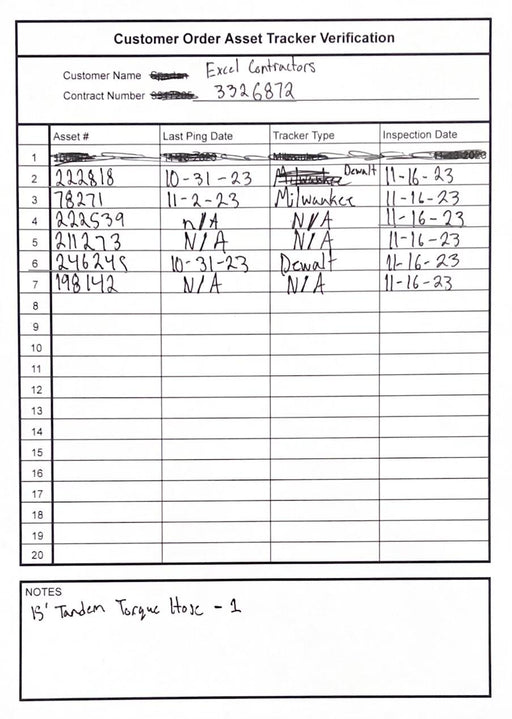 Customer Order Asset Tracker Verification
Customer Name Spartan Excel Contractors
Contract Number 3326872
Asset # Last Ping Date Tracker Type Inspection Date
1
2 222818 10-31-23 Milwaukee Dewalt 11-16-23
3 78271 11-2-23 Milwaukee 11-16-23
4 222539 n/A N/A 11-16-23
5 211273 N/A N/A 11-16-23
6 246245 10-31-23 Dewalt 11-16-23
7 198142 N/A N/A 11-16-23
8
9
10
11
12
13
14
15
16
17
18
19
20
NOTES
15' Tandem Torque Hose - 1